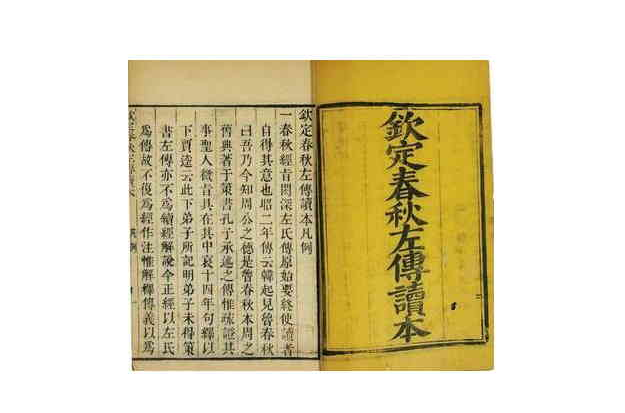 欽定春秋左傳讀本
欽定春秋左傳讀本凡例
一春秋經旨閎深左氏傳原始要終使讀者
自得其意也昭二年傳云韓起見魯春秋
曰吾乃今知周公之德是魯春秋本周之
舊典著于策書孔子承述之傳惟疏證其
事聖人微旨具在其中哀十四年句釋以
下賈逵云此下弟子所記明弟子未得策
書左傳亦不爲續經解說今正經以左氏
爲傳故不復爲經作注惟解釋傳義以爲